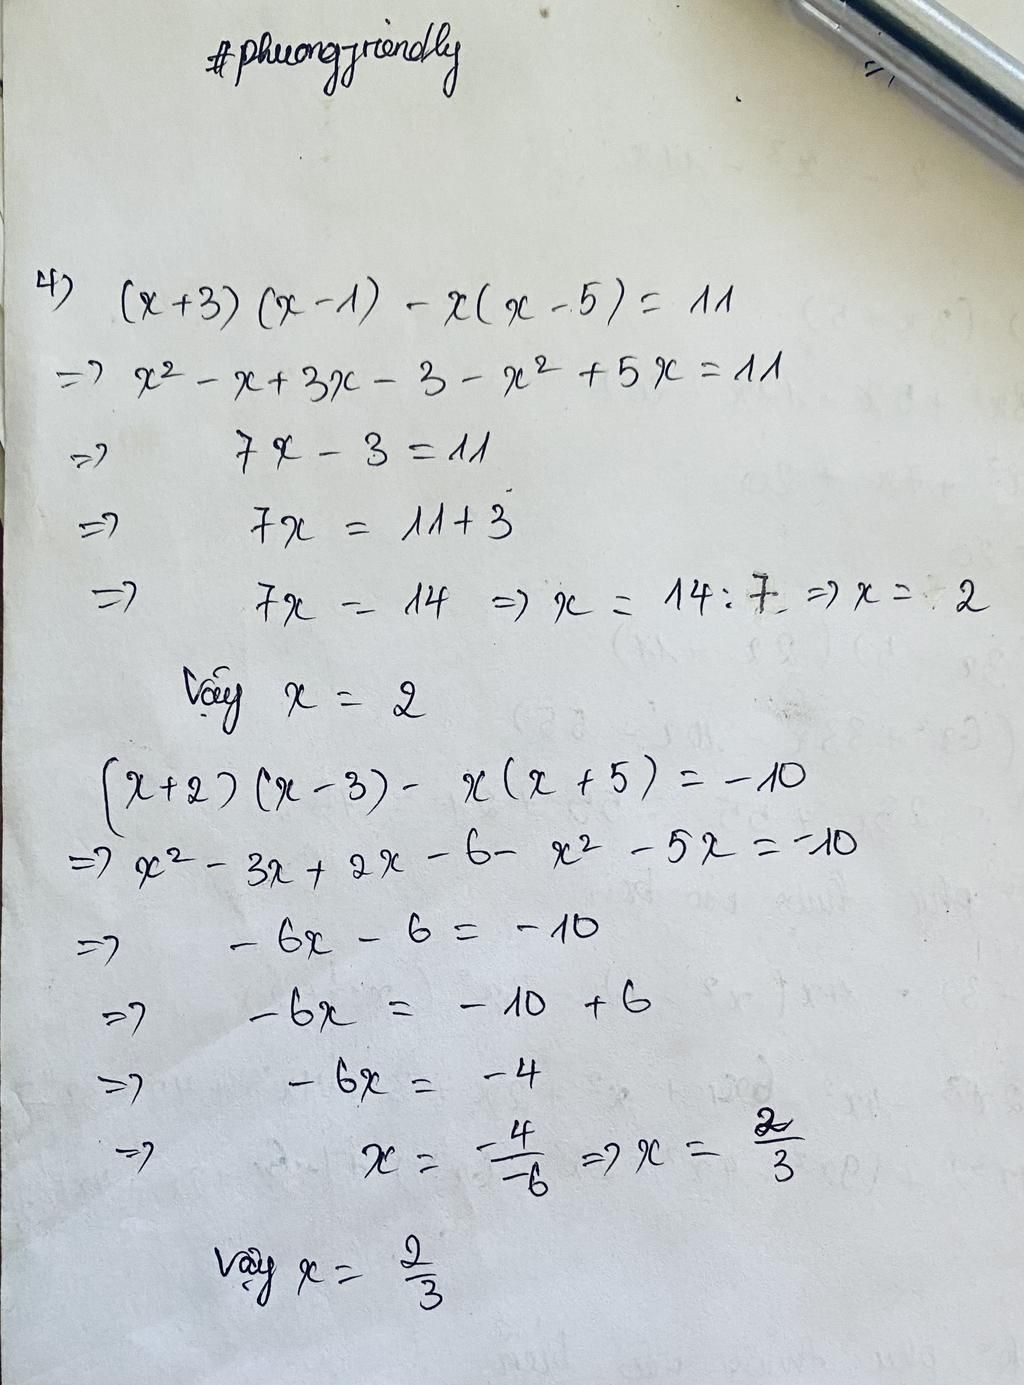 #phuongfriendly
4) (x+3)(x-1) - x(x-5) = 11
=> x² - x + 3x - 3 - x² + 5x = 11
=> 7x - 3 = 11
=> 7x = 11 + 3
=> 7x = 14 => x = 14 : 7 => x = 2
Vậy x = 2
(x+2)(x-3) - x(x+5) = -10
=> x² - 3x + 2x - 6 - x² - 5x = -10
=> -6x - 6 = -10
=> -6x = -10 + 6
=> -6x = -4
=> x = -4/-6 => x = 2/3
Vậy x = 2/3